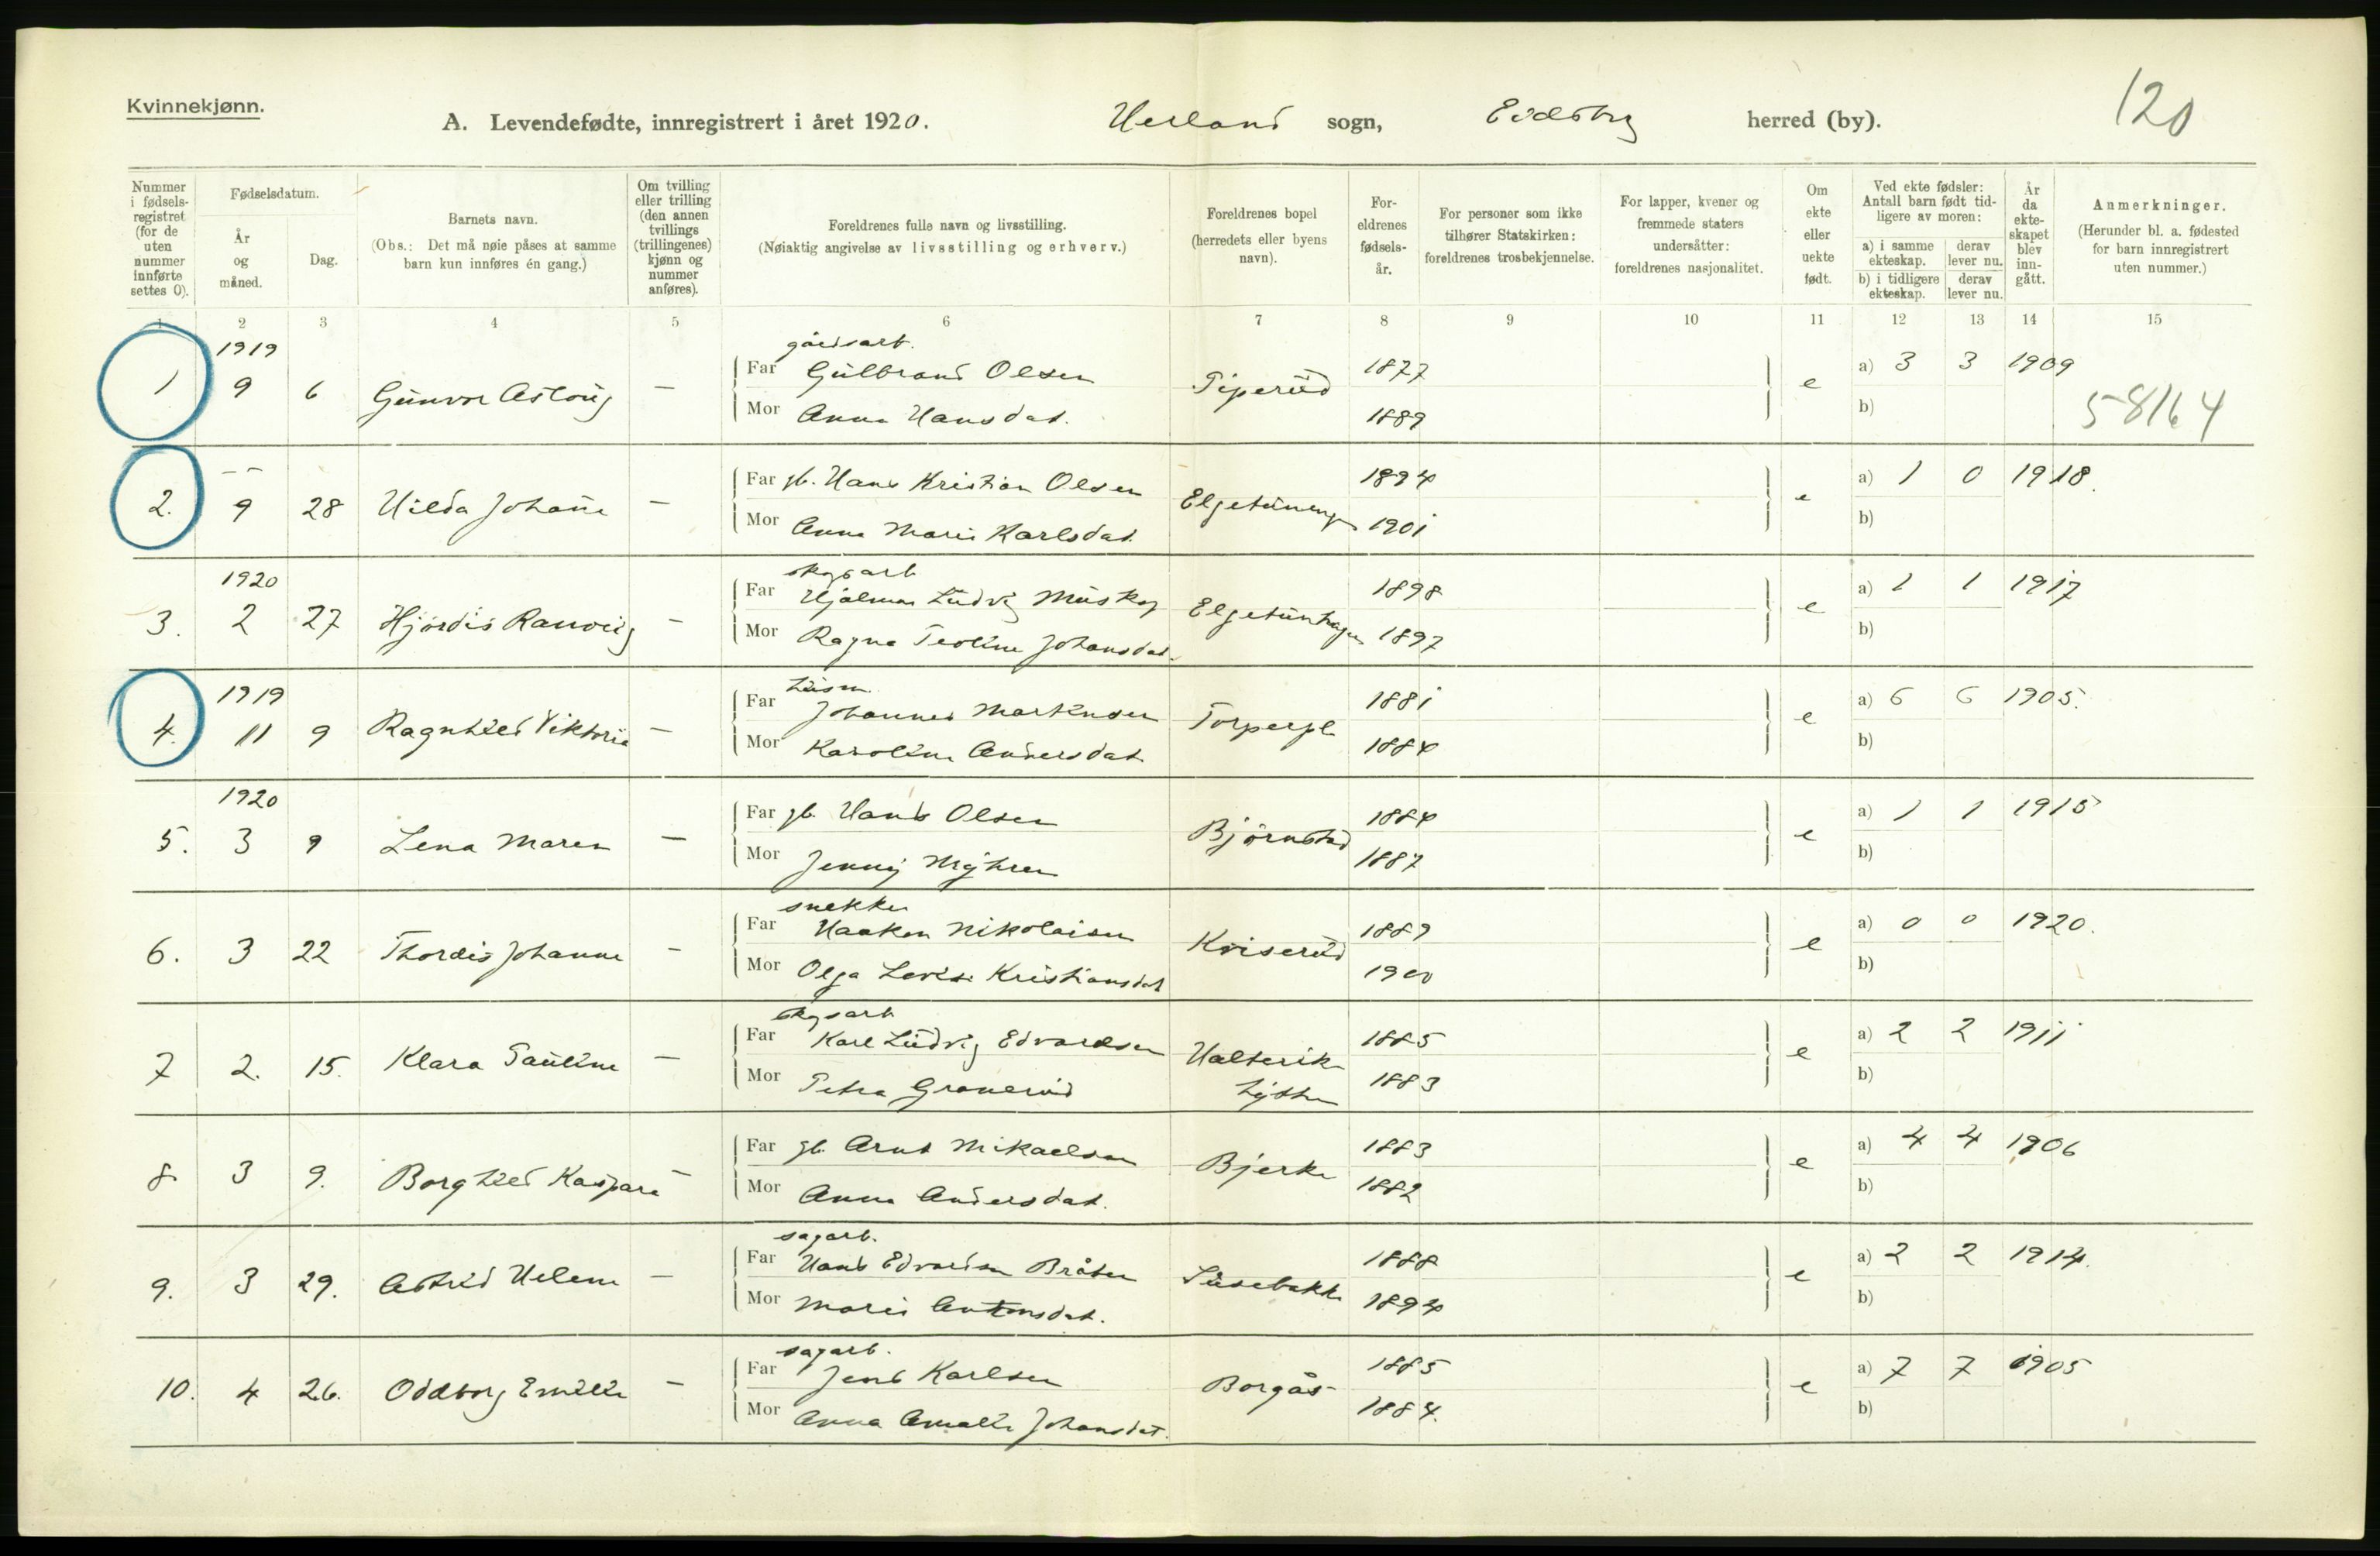 Kvinnekjønn.
A. Levendefødte, innregistrert i året 1920. Herland sogn, Eidsberg herred (by). 120
Nummer i fødsels-registret (for de uten nummer innførte settes 0).
Fødselsdatum.
År og måned.
Dag.
Barnets navn.
(Obs.: Det må nøie påses at samme barn kun innføres én gang.)
Om tvilling eller trilling (den annen tvillings (trillingenes) kjønn og nummer anføres).
Foreldrenes fulle navn og livsstilling.
(Nøiaktig angivelse av livsstilling og erhverv.)
Foreldrenes bopel (herredets eller byens navn).
For-eldrenes fødsels-år.
For personer som ikke tilhører Statskirken: foreldrenes trosbekjennelse.
For lapper, kvener og fremmede staters undersåtter: foreldrenes nasjonalitet.
Om ekte eller uekte født.
Ved ekte fødsler: Antall barn født tid-ligere av moren:
a) i samme ekteskap. derav lever nu.
b) i tidligere ekteskap. derav lever nu.
År da ekte-skapet blev inn-gått.
Anmerkninger.
(Herunder bl. a. fødested for barn innregistrert uten nummer.)
1 2 3 4 5 6 7 8 9 10 11 12 13 14 15
1919 gårdsarb.
1 9 6 Gunvor Aslaug — Far Gulbrand Olsen Piperud 1877 e a) 3 3 1909
Mor Anna Hansdat. 1889 b) 58164
2. – – 9 28 Hilda Johanne — Far gb. Hans Kristian Olsen 1894 e a) 1 0 1918.
Mor Anna Marie Karlsdat. 1901 b)
1920 skogsarb
3. 2 27 Hjørdis Ranveig — Far Hjalmar Ludvig Elgetunhagen 1898 e a) 1 1 1917
Mor Ragna Teoline Johansdat. 1897 b)
1919 husm.
4. 11 9 Ragnhild Viktoria — Far Johannes Markusen Torperpl. 1881 e a) 6 6 1905.
Mor Karoline Andersdat. 1884 b)
1920
5. 3 9 Lena Maren — Far gb. Hans Olsen Bjørnstad 1884 e a) 1 1 1915
Mor Jenny Myhren 1887 b)
snekker
6. 3 22 Thordis Johanne — Far Haakon Nikolaisen Kviserud 1889 e a) 0 0 1920.
Mor Olga Lovise Kristiansdat 1900 b)
skogsarb
7 2. 15. Klara Pauline — Far Karl Ludvig Edvardsen 1885 e a) 2 2 1911
Mor Petra Granerud 1883 b)
8 3 9. Borghild Kaspara — Far gb. Arnt Mikaelsen Bjerke 1883 e a) 4 4 1906
Mor Anna Andersdat. 1882 b)
sagarb.
9. 3 29. Astrid Helene — Far Hans Edvardsen Bråten Lusebakke 1888 e a) 2 2 1914.
Mor Marie Antonsdat. 1894 b)
sagarb.
10. 4 26. Oddborg Emilie — Far Jens Karlsen Borgås 1885 e a) 7 7 1905
Mor Anna Amalie Johansdat. 1884. b)